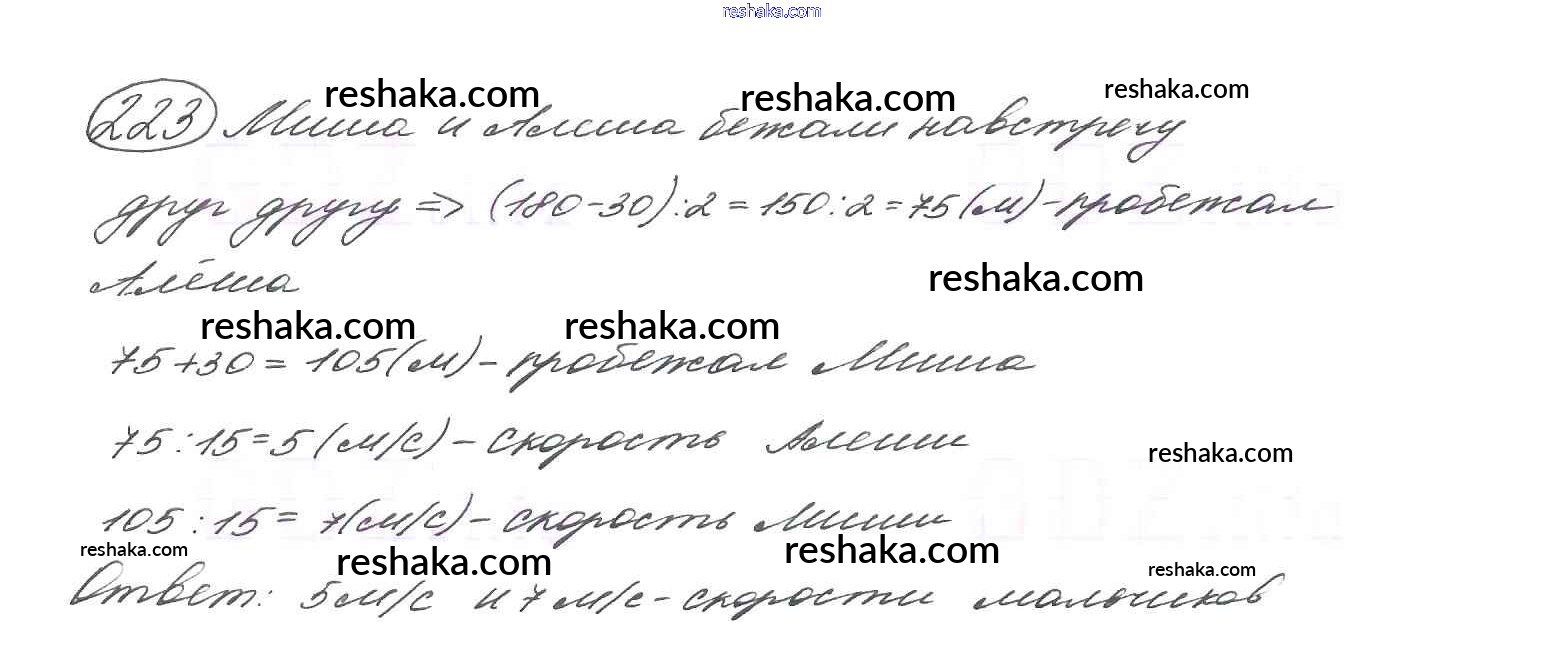 reshaka.com
reshaka.com reshaka.com reshaka.com
223 Миша и Алеша бежали навстречу
друг другу => (180-30):2=150:2=75(м)-пробежал
Алёша
reshaka.com
reshaka.com reshaka.com
75+30=105(м)-пробежал Миша
75:15=5(м/с)-скорость Алеши
reshaka.com
105:15=7(м/с)-скорость Миши
reshaka.com reshaka.com reshaka.com reshaka.com
Ответ: 5м/с и 7м/с-скорости мальчиков